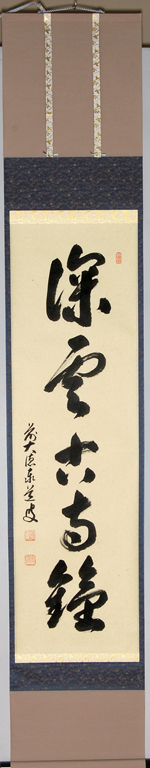 深雲古寺鐘
前大徳泉道叟